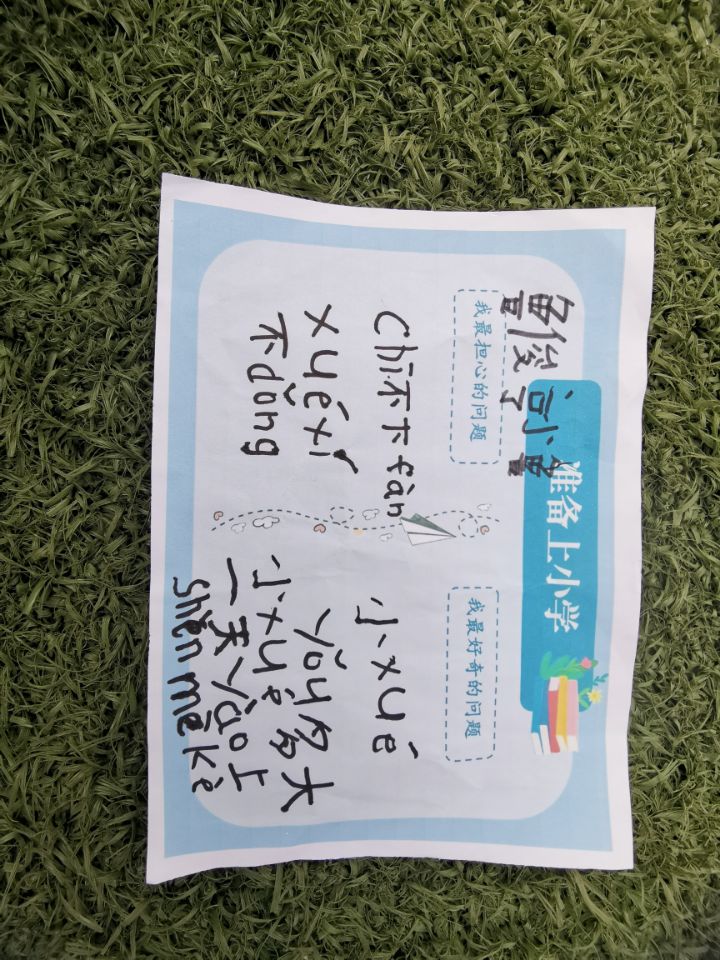 准备上小学
我最担心的问题
chī不下fàn
xué xí
不dǒng
我最好奇的问题
小xué
yǒu多大
小xué
一天yào上
shén me kè